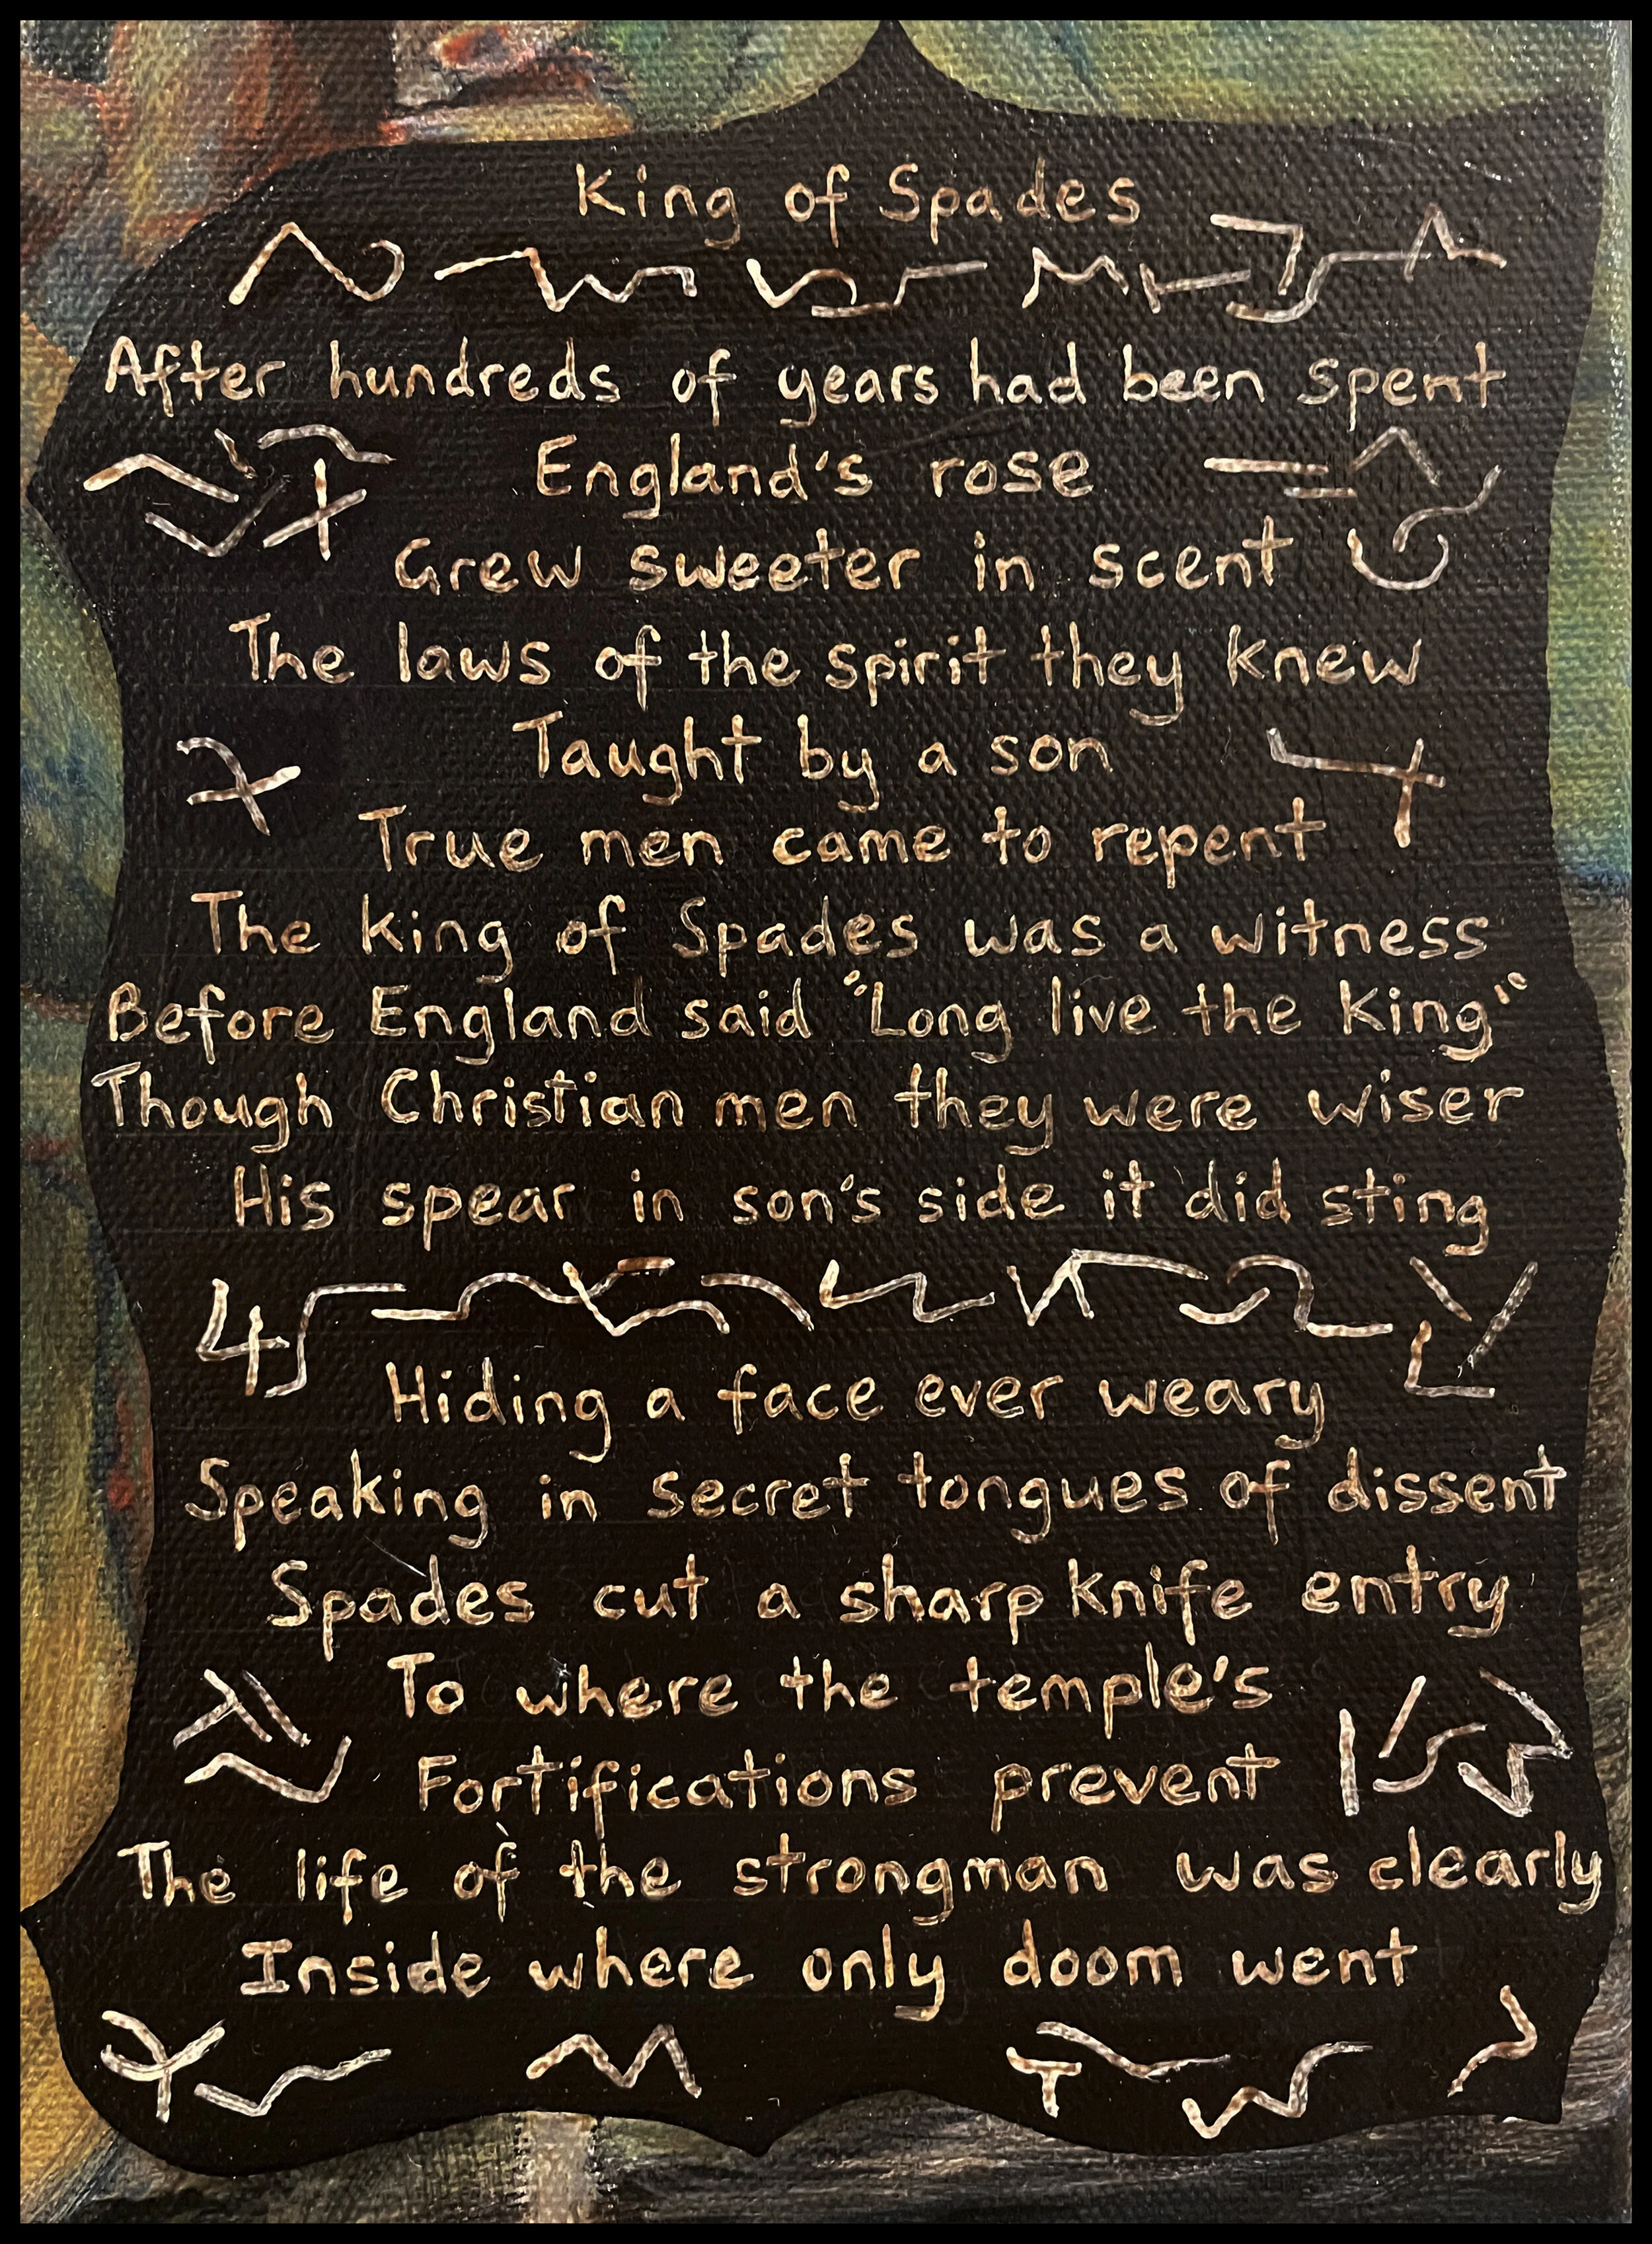 King of Spades
After hundreds of years had been spent
England's rose
Grew sweeter in scent
The laws of the spirit they knew
Taught by a son
True men came to repent
The king of Spades was a witness
Before England said "Long live the King"
Though Christian men they were wiser
His spear in son's side it did sting
Hiding a face ever weary
Speaking in secret tongues of dissent
Spades cut a sharp knife entry
To where the temple's
Fortifications prevent
The life of the strongman was clearly
Inside where only doom went